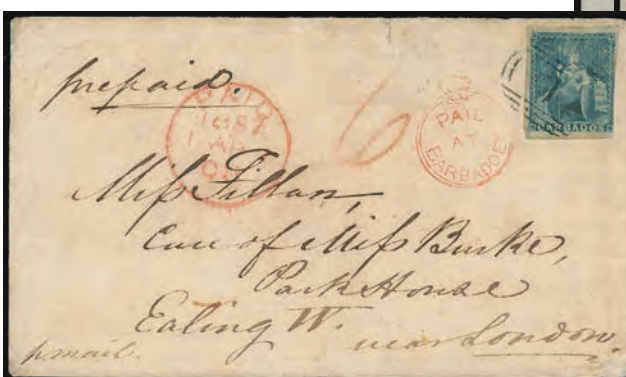 prepaid.
1857
6
PAID
AT
BARBADOES
BARBADOS
Miss Tillan,
Care of Miss Burke,
Park House
Ealing W.
near London.
p. mail.